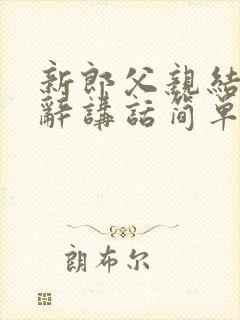 新郎父親結
辭講話簡單
朗布尔